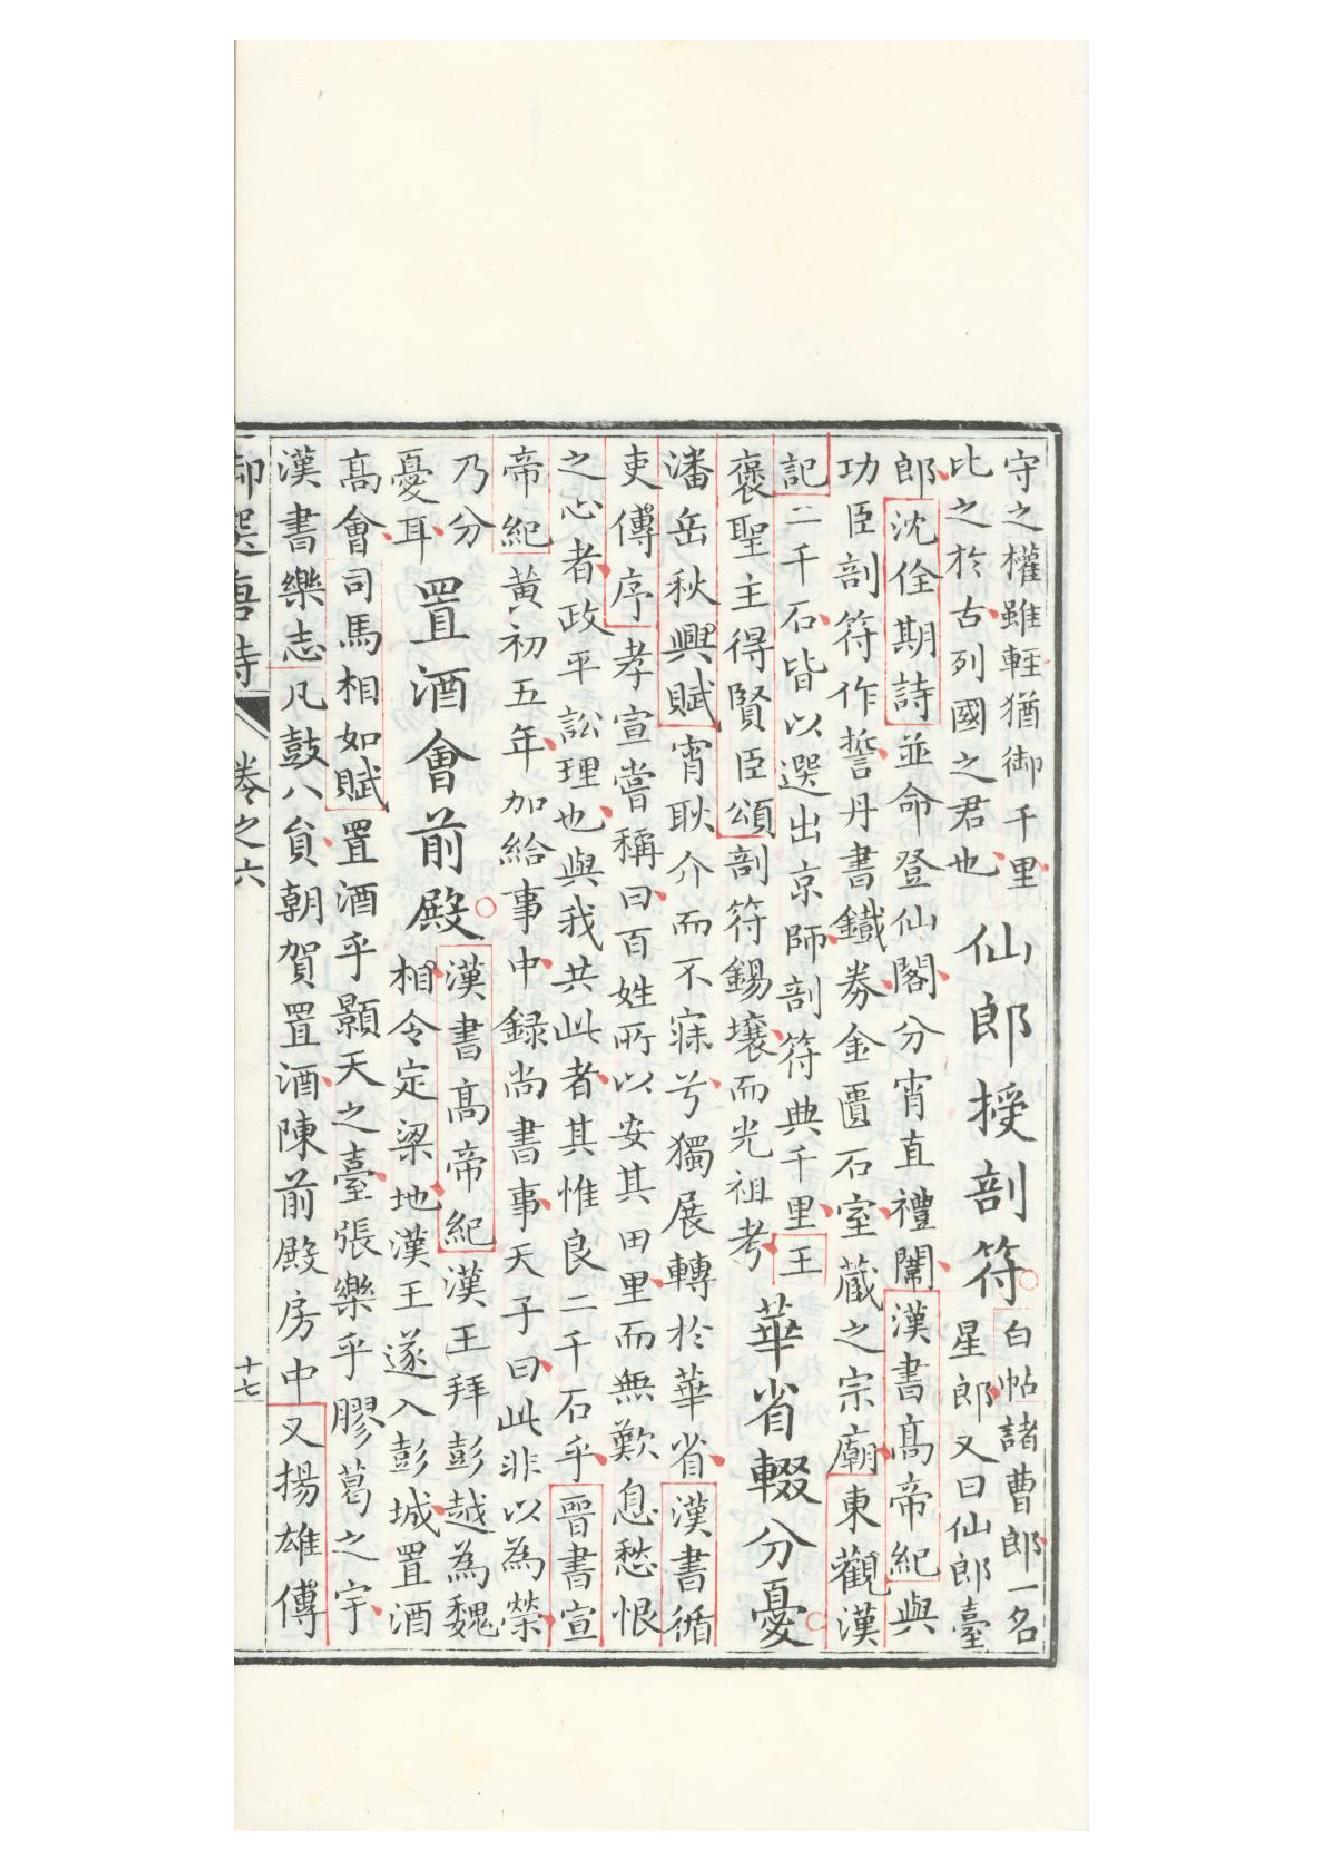 守之權雖輕猶御千里仙郎授剖符白帖諸曹郎一名
比之於古列國之君也星郎又曰仙郎臺
郎沈佺期詩並命登仙閣分宵直禮闈漢書高帝紀與
功臣剖符作誓丹書鐵券金匱石室藏之宗廟東觀漢
記二千石皆以選出京師剖符典千里王
褒聖主得賢臣頌剖符錫壤而光祖考華省輟分憂
潘岳秋興賦宵耿介而不寐兮獨展轉於華省漢書循
吏傳序孝宣嘗稱曰百姓所以安其田里而無歎息愁恨
之心者政平訟理也與我共此者其惟良二千石乎晉書宣
帝紀黃初五年加給事中録尚書事天子曰此非以為榮
乃分憂耳置酒會前殿漢書高帝紀漢王拜彭越為魏
相令定梁地漢王遂入彭城置酒
高會司馬相如賦置酒乎顥天之臺張樂乎膠葛之宇
漢書樂志凡鼓八員朝賀置酒陳前殿房中又揚雄傳
御選唐詩 卷之六 十七